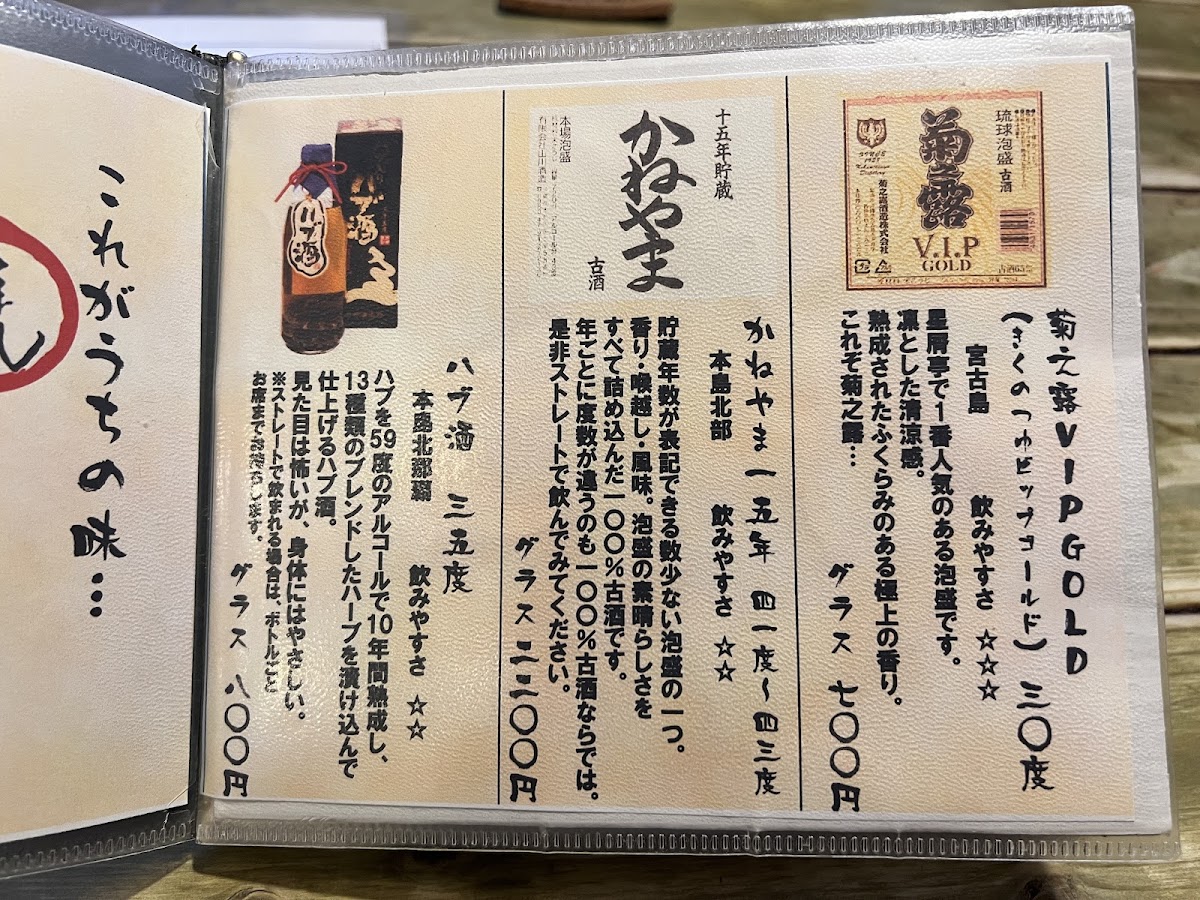 十五年貯蔵
かねやま
古酒
本場泡盛
有限会社山川酒造
琉球泡盛 古酒
菊之露
V.I.P
GOLD
菊之露酒造株式会社
菊之露VIPGOLD
(きくのつゆビップゴールド) 三〇度
宮古島 飲みやすさ ☆☆☆
星屑亭で1番人気のある泡盛です。
凛とした清涼感。
熟成されたふくらみのある極上の香り。
これぞ菊之露…
グラス 七〇〇円
かねやま一五年 四一度~四三度
本島北部 飲みやすさ ☆☆
貯蔵年数が表記できる数少ない泡盛の一つ。
香り・喉越し・風味。泡盛の素晴らしさを
すべて詰め込んだ一〇〇%古酒です。
年ごとに度数が違うのも一〇〇%古酒ならでは。
是非ストレートで飲んでみてください。
グラス 二二〇〇円
ハブ酒
ハブ酒
ハブ酒 三五度
本島北那覇 飲みやすさ ☆☆
ハブを59度のアルコールで10年間熟成し、
13種類のブレンドしたハーブを漬け込んで
仕上げるハブ酒。
見た目は怖いが、身体にはやさしい。
※ストレートで飲まれる場合は、ボトルごと
お席までお持ちします。
グラス 八〇〇円
これがうちの味…